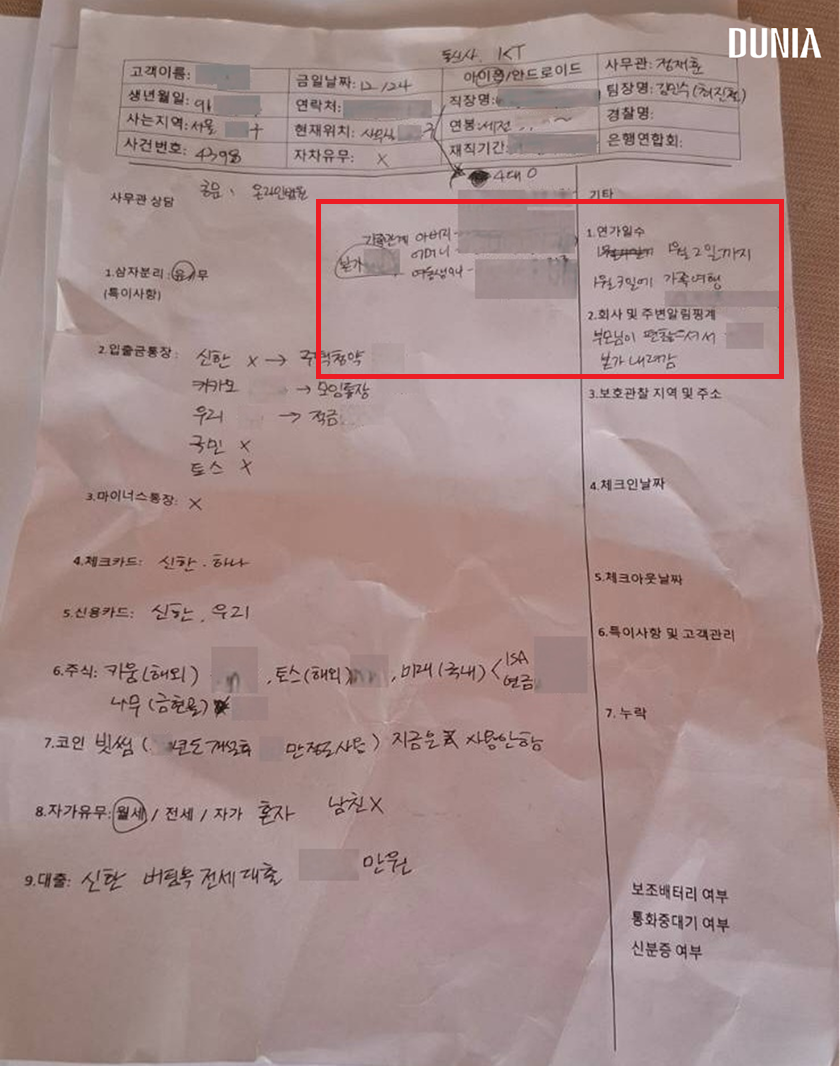 DUNIA
통신사. KT
고객이름:
금일날짜: 12/24
아이폰/안드로이드
사무관: 정재훈
생년월일: 91
연락처:
직장명:
팀장명: 김민수(최진철)
사는지역: 서울 구
현재위치: 사무실
연봉: 세전
경찰명:
사건번호: 4398
자차유무: X
재직기간:
은행연합회:
4대 O
사무관 상담
온라인법원
기타
가족관계 아버지-
어머니-
본가
여동생
1.삼자분리: 유/무
(특이사항)
1.연가일수
1월 2일까지
1월 3일에 가족여행
2.회사 및 주변알림핑계
부모님이 편찮으셔서
본가 내려감
2.입출금통장: 신한 X → 주택청약
카카오 → 모임통장
우리 → 적금
국민 X
토스 X
3.보호관찰 지역 및 주소
3.마이너스통장: X
4.체크인날짜
4.체크카드: 신한. 하나
5.체크아웃날짜
5.신용카드: 신한, 우리
6.특이사항 및 고객관리
6.주식: 키움(해외) , 토스(해외) , 미래(국내) < ISA
연금
나무(금현물)
7. 누락
7.코인 빗썸 ( 년도 개설후 만정도사용) 지금은 사용안함
8.자가유무: 월세 / 전세 / 자가 혼자 남친X
9.대출: 신한 버팀목 전세대출 만원
보조배터리 여부
통화중대기 여부
신분증 여부